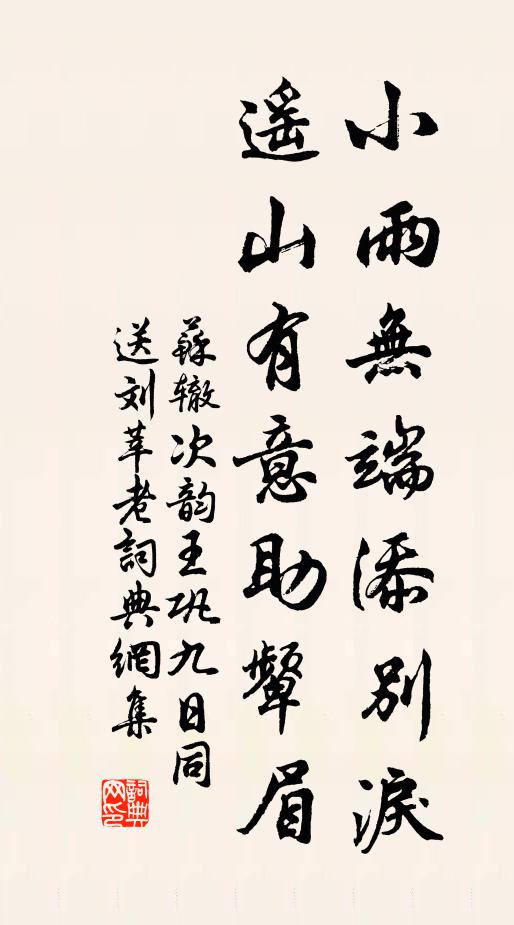 小雨無端添別淚
遥山有意助顰眉
蘇辙次韵王巩九日同
送刘莘老詞典網集
詞典网印